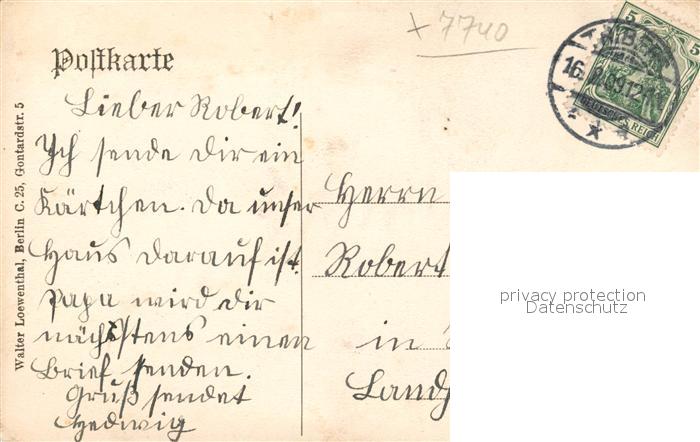 + 7740
Postkarte
Lieber Robert!
Ich sende dir ein
Kärtchen. Da unser
Haus darauf ist.
Papa wird dir
nächstens einen
Brief senden.
Gruß sendet
Hedwig
Herrn
Robert
in
Land
Walter Loewenthal, Berlin C. 25, Gontardstr. 5
5 5
DEUTSCHES REICH
16. 09.12
privacy protection
Datenschutz